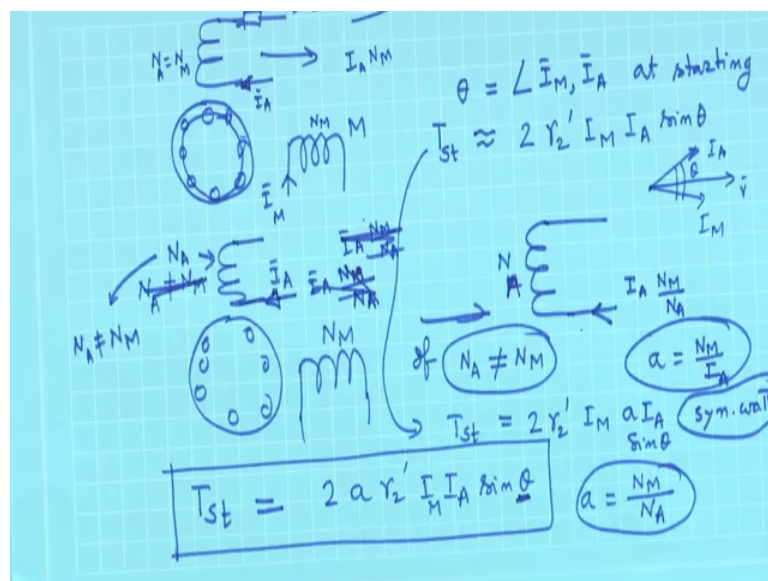 N_A = N_M
I_A N_M
Ī_A
θ = ∠ Ī_M, Ī_A at starting
N_M M
T_st ≈ 2 r₂' I_M I_A sinθ
Ī_M
I_A
θ
V̄
I_M
N_A
N_A ≠ N_M
Ī_A
Ī_A N_M/N_A
Ī_A N_M/N_A
N_A
I_A N_M/N_A
N_A ≠ N_M
N_M
If N_A ≠ N_M
a = N_M/I_A
T_st = 2 r₂' I_M a I_A sinθ
syn. wat
T_st = 2 a r₂' I_M I_A sin θ
a = N_M/N_A